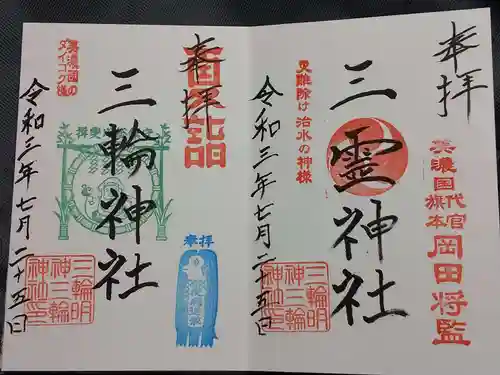 奉拝
美濃国代官
旗本 岡田将監
三霊神社
災難除け 治水の神様
令和三年七月二十五日
三輪明
神三輪
神社印
奉拝
三輪神社
美濃國の
ダイコク様
奉拝
令和三年七月二十五日
三輪明
神三輪
神社印